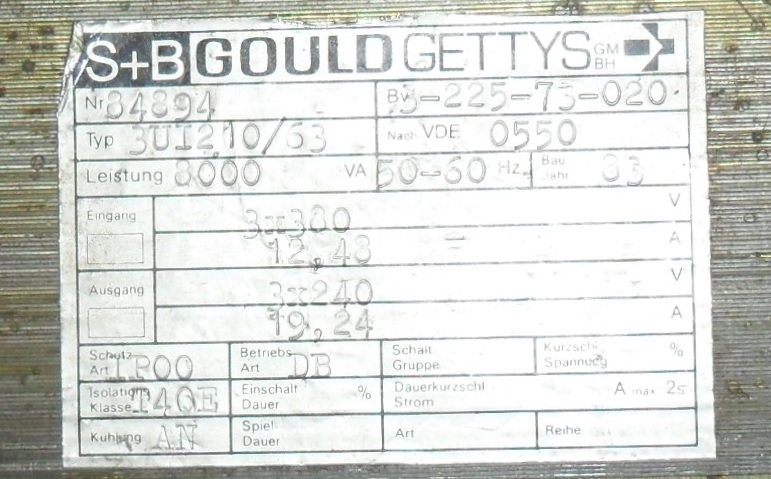 S+B GOULD GETTYS GM BH
Nr 84894 BV 3-225-73-020
Typ 3UI210/63 Nach VDE 0550
Leistung 8000 VA 50-60 Hz. Bau Jahr 83
Eingang 3x380 V
12,48 A
Ausgang 3x240 V
19,24 A
Schutz Art IP00 Betriebs Art DB Schalt Gruppe Kurzschl Spannung %
Isolations Klasse T40E Einschalt Dauer % Dauerkurzschl Strom A max 2s
Kühlung AN Spiel Dauer Art Reihe